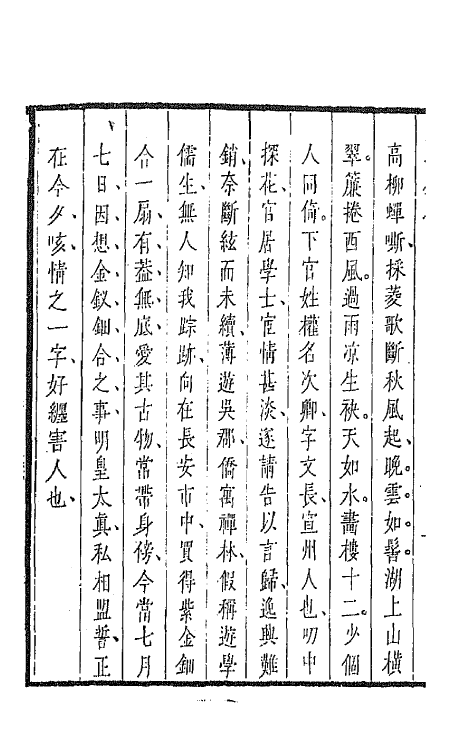 高柳蟬嘶採菱歌斷秋風起晚雲如髻湖上山橫
翠簾捲西風過雨凉生袂天如水畵樓十二少個
人同倚下官姓權名次卿字文長宣州人也叨中
探花官居學士宦情甚淡遂請告以言歸逸興難
銷奈斷絃而未續薄遊吳郡僑寓禪林假稱遊學
儒生無人知我踪跡向在長安市中買得紫金鈿
合一扇有葢無底愛其古物常帶身傍今當七月
七日因想金釵鈿合之事明皇太真私相盟誓正
在今夕咳情之一字好纏害人也